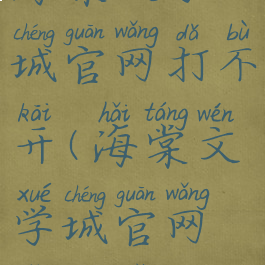 chéng guān wǎng dǎ bù
城官网打不
kāi hǎi táng wén
开(海棠文
xué chéng guān wǎng
学城官网